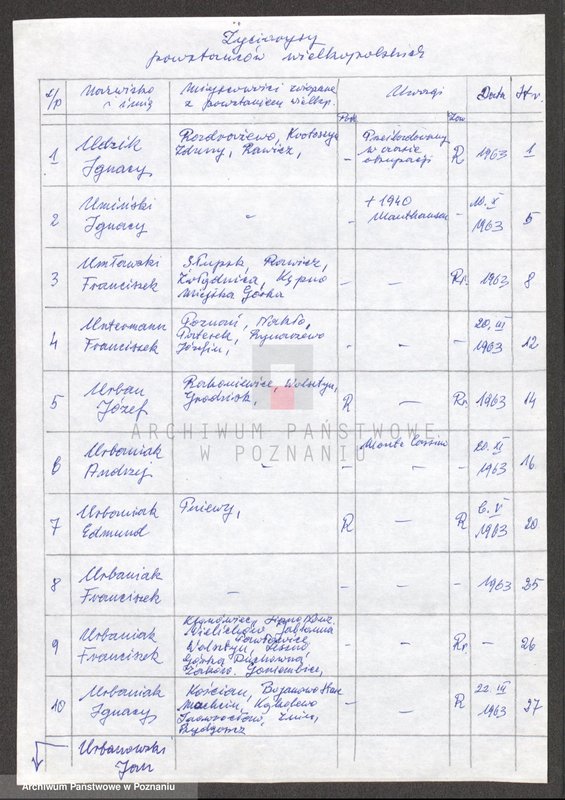 Życiorysy
powstańców wielkopolskich
L/p Nazwisko i imię Miejscowości związane z powstaniem wielkp. Uwagi Data Str.
1 Udzik Ignacy Rozdrażewo, Krotoszyn Zduny, Rawicz, - Przesiedlony w czasie okupacji R 1963 1
2 Umiński Ignacy " - + 1940 Mauthausen - 10. X 1963 5
3 Umławski Franciszek Słupsk, Rawicz, Żołędnica, Kępno Miejska Górka - - Rr. 1963 8
4 Untermann Franciszek Poznań, Nakło, Paterek, Rynarzewo Józefin, - - - 20. III 1963 12
5 Urban Józef Rakoniewice, Wolsztyn, Grodzisk, R - Rr. 1963 14
6 Urbaniak Andrzej - - Monte Cassino - 20. XI 1963 16
7 Urbaniak Edmund Pniewy, R - R 6. V 1963 20
8 Urbaniak Franciszek - - - - 1963 25
9 Urbaniak Franciszek Jabłonna Pawłowice Wolsztyn, Leszno Górka Duchowna - - Rr. - 26
10 Urbaniak Ignacy Kościan, Bojanowo Star. Machcin, Kąkolewo Inowrocław, Żnin, Bydgoszcz - - R 22. III 1963 27
Urbanowski Jan
ARCHIWUM PAŃSTWOWE
W POZNANIU
Archiwum Państwowe w Poznaniu